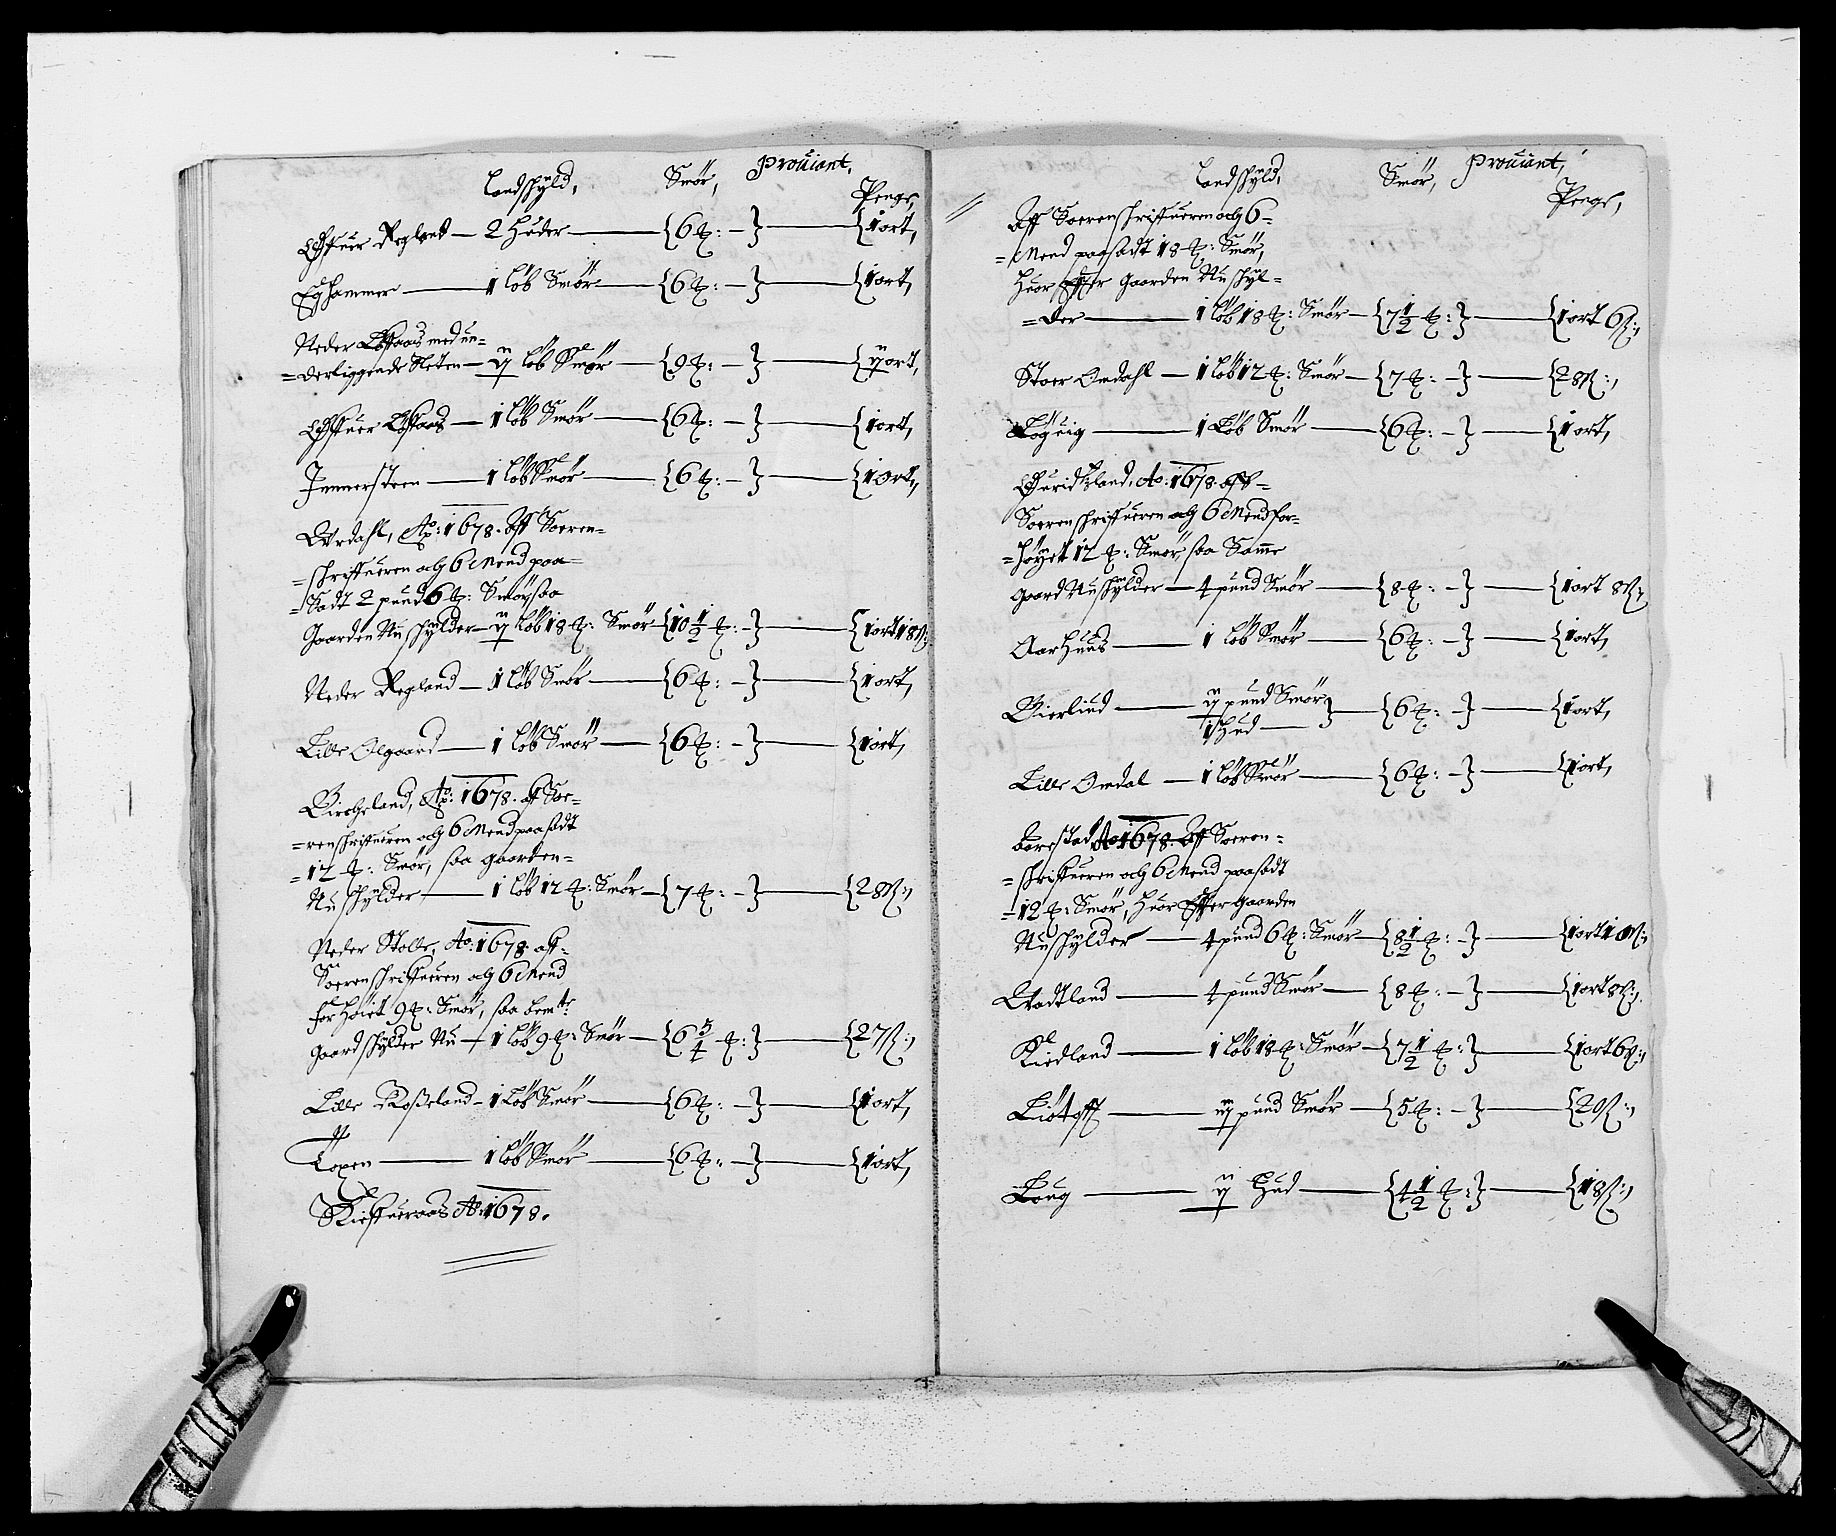 Landschyld, Smør, Proviant,
Penge,
Øffuer Regland — 2 Huder — {6 ℔: —} — {1 ort,
Eghammer — 1 Løb Smør — {6 ℔: —} — {1 ort,
Neder Løffaas med un=
=derliggende Sleten — ij Løb Smør — {9 ℔: —} — {ij ort,
Øffuer Løffaas — 1 Løb Smør — {6 ℔: —} — {1 ort,
Immersteen — 1 Løb Smør — {6 ℔: —} — {1 ort,
Ao: 1678. Aff Soeren=
=schriffueren och 6 Mend paa=
=Sadt 2 pund 6 ℔: Smør, saa
Gaarden Nu schylder — ij Løb 18 ℔: Smør {10 1/2 ℔: —} — {1 ort 18 ß:,
Neder Regland — 1 Løb Smør — {6 ℔: —} — {1 ort,
Lille Ølgaard — 1 Løb Smør — {6 ℔: —} — {1 ort,
Bircheland, Ao: 1678. aff Soe=
=renschriffueren och 6 Mend paasadt
=12 ℔: Smør, saa gaarden=
Nu schylder — 1 Løb 12 ℔: Smør — {7 ℔: —} — {28 ß:,
Neder Stolle, Ao: 1678. aff=
Soerenschriffueren och 6 Mend
forhøiet 9 ℔: Smør, saa bemte:
Gaard schylder Nu — 1 Løb 9 ℔: Smør — {6 3/4 ℔: } — {27 ß:,
Lille Roßeland — 1 Løb Smør — {6 ℔: —} — {1 ort,
Topen — 1 Løb Smør — {6 ℔: —} — {1 ort,
Kieffueraas Ao: 1678.
Landschyld, Smør, Proviant,
Penge,
Aff Soerenschriffueren och 6=
=Mend paasadt 18 ℔: Smør,
Huor effter Gaarden Nu schyl=
=der — 1 Løb 18 ℔: Smør — {7 1/2 ℔: } — {1 ort 6 ß:,
Stoer Omdahl — 1 Løb 12 ℔: Smør — {7 ℔: —} — {28 ß:,
Løguig — 1 Løb Smør — {6 ℔: —} — {1 ort,
Ao: 1678. aff=
Soerenschriffueren och 6 Mend for=
=høyet 12 ℔: Smør, saa Samme
Gaard Nu schylder — 4 pund Smør — {8 ℔: —} — {1 ort 8 ß:,
Aarhuus — 1 Løb Smør — {6 ℔: —} — {1 ort,
Bierlied — ij pund Smør
1 Hud — } — {6 ℔: —} — {1 ort,
Lille Omdal — 1 Løb Smør — {6 ℔: —} — {1 ort,
Barestad Ao 1678. Aff Soeren=
=schriffueren och 6 Mend paasadt
=12 ℔: Smør, Huor Effter Gaarden
Nu schylder — 4 pund 6 ℔: Smør — {8 1/2 ℔: —} — {1 ort 10 ß:,
Vadtland — 4 pund Smør — {8 ℔: —} — {1 ort 8 ß:,
Kiedland — 1 Løb 18 ℔: Smør — {7 1/2 ℔: } — {1 ort 6 ß:,
Liøtoff — ij pund Smør — {5 ℔: —} — {20 ß:,
Loug — ij Hud — {4 1/2 ℔: } — {18 ß:,